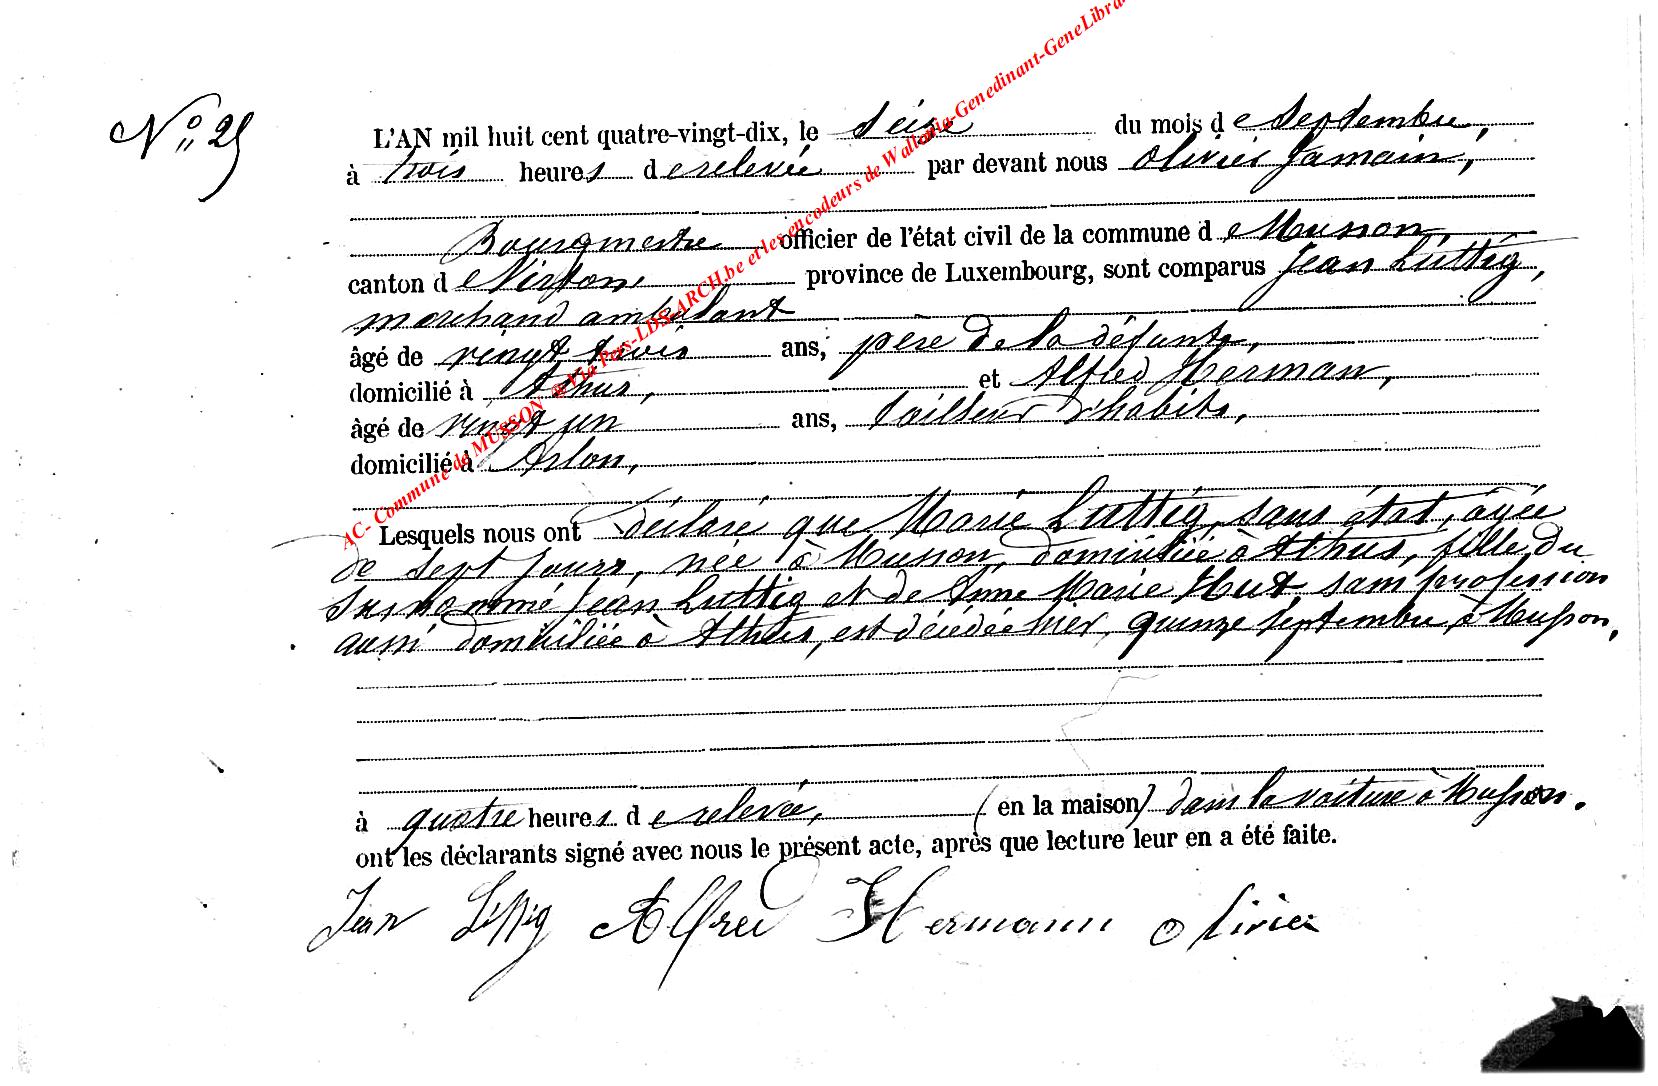 N° 25
L'AN mil huit cent quatre-vingt-dix, le seize du mois de septembre,
à trois heures de relevée par devant nous Olivier Jamain,
Bourgmestre officier de l'état civil de la commune de Musson,
canton de Virton, province de Luxembourg, sont comparus Jean Luttig,
marchand ambulant
âgé de vingt trois ans, père de la défunte,
domicilié à Athus, et Alfred Herman,
âgé de vingt un ans, tailleur d'habits,
domicilié à Arlon,
Lesquels nous ont déclaré que Marie Luttig, sans état, âgée
de sept jours, née à Musson, domiciliée à Athus, fille du
susnommé Jean Luttig et de Anne Marie Hut sans profession
aussi domiciliée à Athus, est décédée hier, quinze septembre, à Musson,
à quatre heures de relevée, (en la maison) dans la voiture à Musson.
ont les déclarants signé avec nous le présent acte, après que lecture leur en a été faite.
Jean Alfred Hermann Olivier
AC- Commune de MUSSON @ Via Pers-LDS-ARCH.be et les encodeurs de Wallonia-Genedinant-GeneLibra